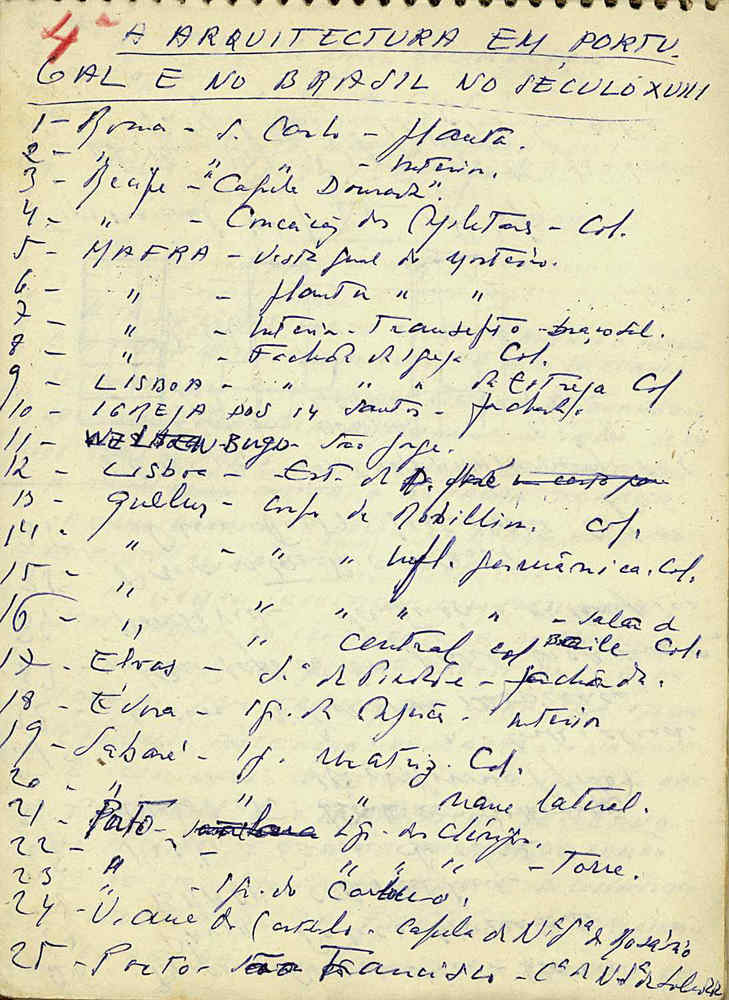 4ª A ARQUITECTURA EM PORTU.
GAL E NO BRASIL NO SÉCULO XVIII
1 - Roma - S. Carlo - planta.
2 - " " " - Interior.
3 - Recife - "Capela Dourada".
4 - " - Conceição dos Militares - Col.
5 - MAFRA - Vista geral do mosteiro.
6 - " - planta " "
7 - " - Interior - Transepto - braço del.
8 - " - Fachada da igreja Col.
9 - LISBOA - " " " da Estrela Col
10 - IGREJA DOS 14 Santos - fachada.
11 - São Jorge.
12 - Lisboa - Est. de D. José
13 - Queluz - corpo de Robillion. Col.
14 - " - " " Infl. germânica. Col.
15 - " " " " " - Sala de
16 - " " central col Baile Col.
17 - Elvas - S.ª da Piedade - fachada.
18 - Évora - Igr. da - Interior
19 - Sabará - Ig. matriz. Col.
20 - " " " nave lateral.
21 - Porto - Igr. dos Clérigos.
22 - " - " " " - Torre.
23 - " - Igr. do Carmo.
24 - Viana do Castelo - capela de N.ª S.ª do Rosário
25 - Porto - São Francisco - C.ª de N.S.ª da Soledade